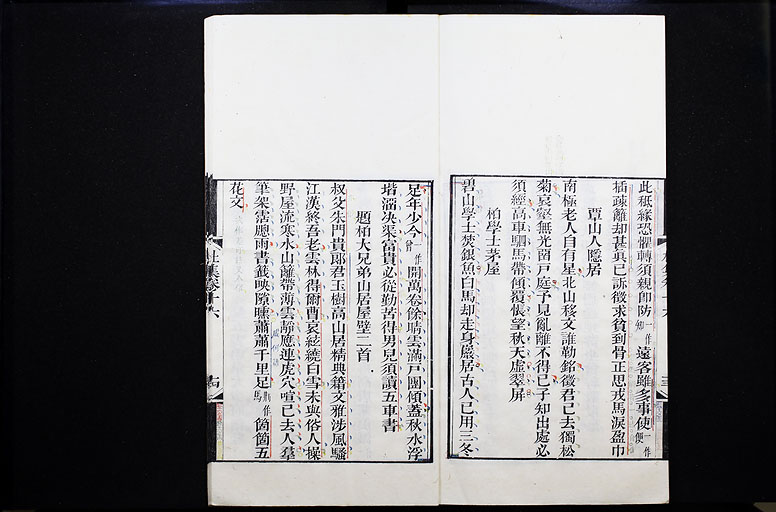 此秪緣恐懼轉須親即防一作知遠客雖多事使一作便
插疎籬却甚真已訴徵求貧到骨正思戎馬淚盈巾
覃山人隱居
南極老人自有星北山移文誰勒銘徵君已去獨松
菊哀壑無光留戶庭予見亂離不得已子知出處必
須經高車駟馬帶傾覆悵望秋天虛翠屏
柏學士茅屋
碧山學士焚銀魚白馬却走身巖居古人已用三冬
足年少今一作曾開萬卷餘晴雲滿戶團傾蓋秋水浮
堦溜决渠富貴必從勤苦得男兒須讀五車書
題柏大兄弟山居屋壁二首
叔父朱門貴郎君玉樹高山居精典籍文雅涉風騷
江漢終吾老雲林得爾曹哀絃繞白雪未與俗人操
野屋流寒水山籬帶薄雲靜應連虎穴喧已去人羣
筆架霑牕雨書籤映隙曛蕭蕭千里足作馬箇箇五
花文
杜集卷十六
十四